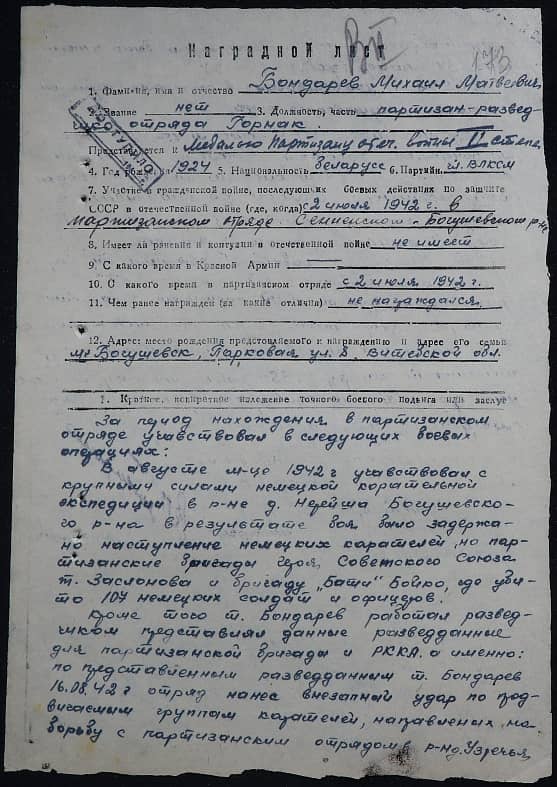 ВII
173
Наградной лист
1. Фамилия, имя и отчество Бондарев Михаил Матвеевич
2. Звание нет 3. Должность, часть партизан-развед-
чик отряда Горнак.
Представляется к Медалью Партизану отеч. Войны II степ.
4. Год рожд. 1924 5. Национальность Беларусс 6. Партийн. чл. ВЛКСМ
7. Участие в гражданской войне, последующих боевых действиях по защите
СССР в отечественной войне (где, когда) с 2 июля 1942 г. в
партизанском отряде Сенненском - Богушевском р-не
8. Имеет ли ранения и контузии в отечественной войне не имеет
9. С какого время в Красной Армии
10. С какого время в партизанском отряде с 2 июля 1942 г.
11. Чем ранее награжден (за какие отличия) не награждался
12. Адрес: место рождения представляемого к награждению и адрес его семьи
м. Богушевск, Парковая ул. 8. Витебской обл.
1. Краткое, конкретное изложение точного боевого подвига или заслуг
За период нахождения в партизанском
отряде учавствовал в следующих боевых
операциях:
В августе м-це 1942 г учавствовал с
крупными силами немецкой карательной
экспедиции в р-не д. Нерейша Богушевско-
го р-на в результате боя было задержа-
но наступление немецких карателей, на пар-
тизанские бригады героя Советского Союза
т. Заслонова и бригаду „Бати" Бойко, где уби-
то 107 немецких солдат и офицеров.
Кроме того т. Бондарев работал развед-
чиком представлял данные разведданные
для партизанской бригады и РККА. а именно:
по представленным разведданным т. Бондарев
16.08.42 г отряд нанес внезапный удар по прод-
вигаемым группам карателей, направленых на
борьбу с партизанским отрядом в р-не д. Узречья,